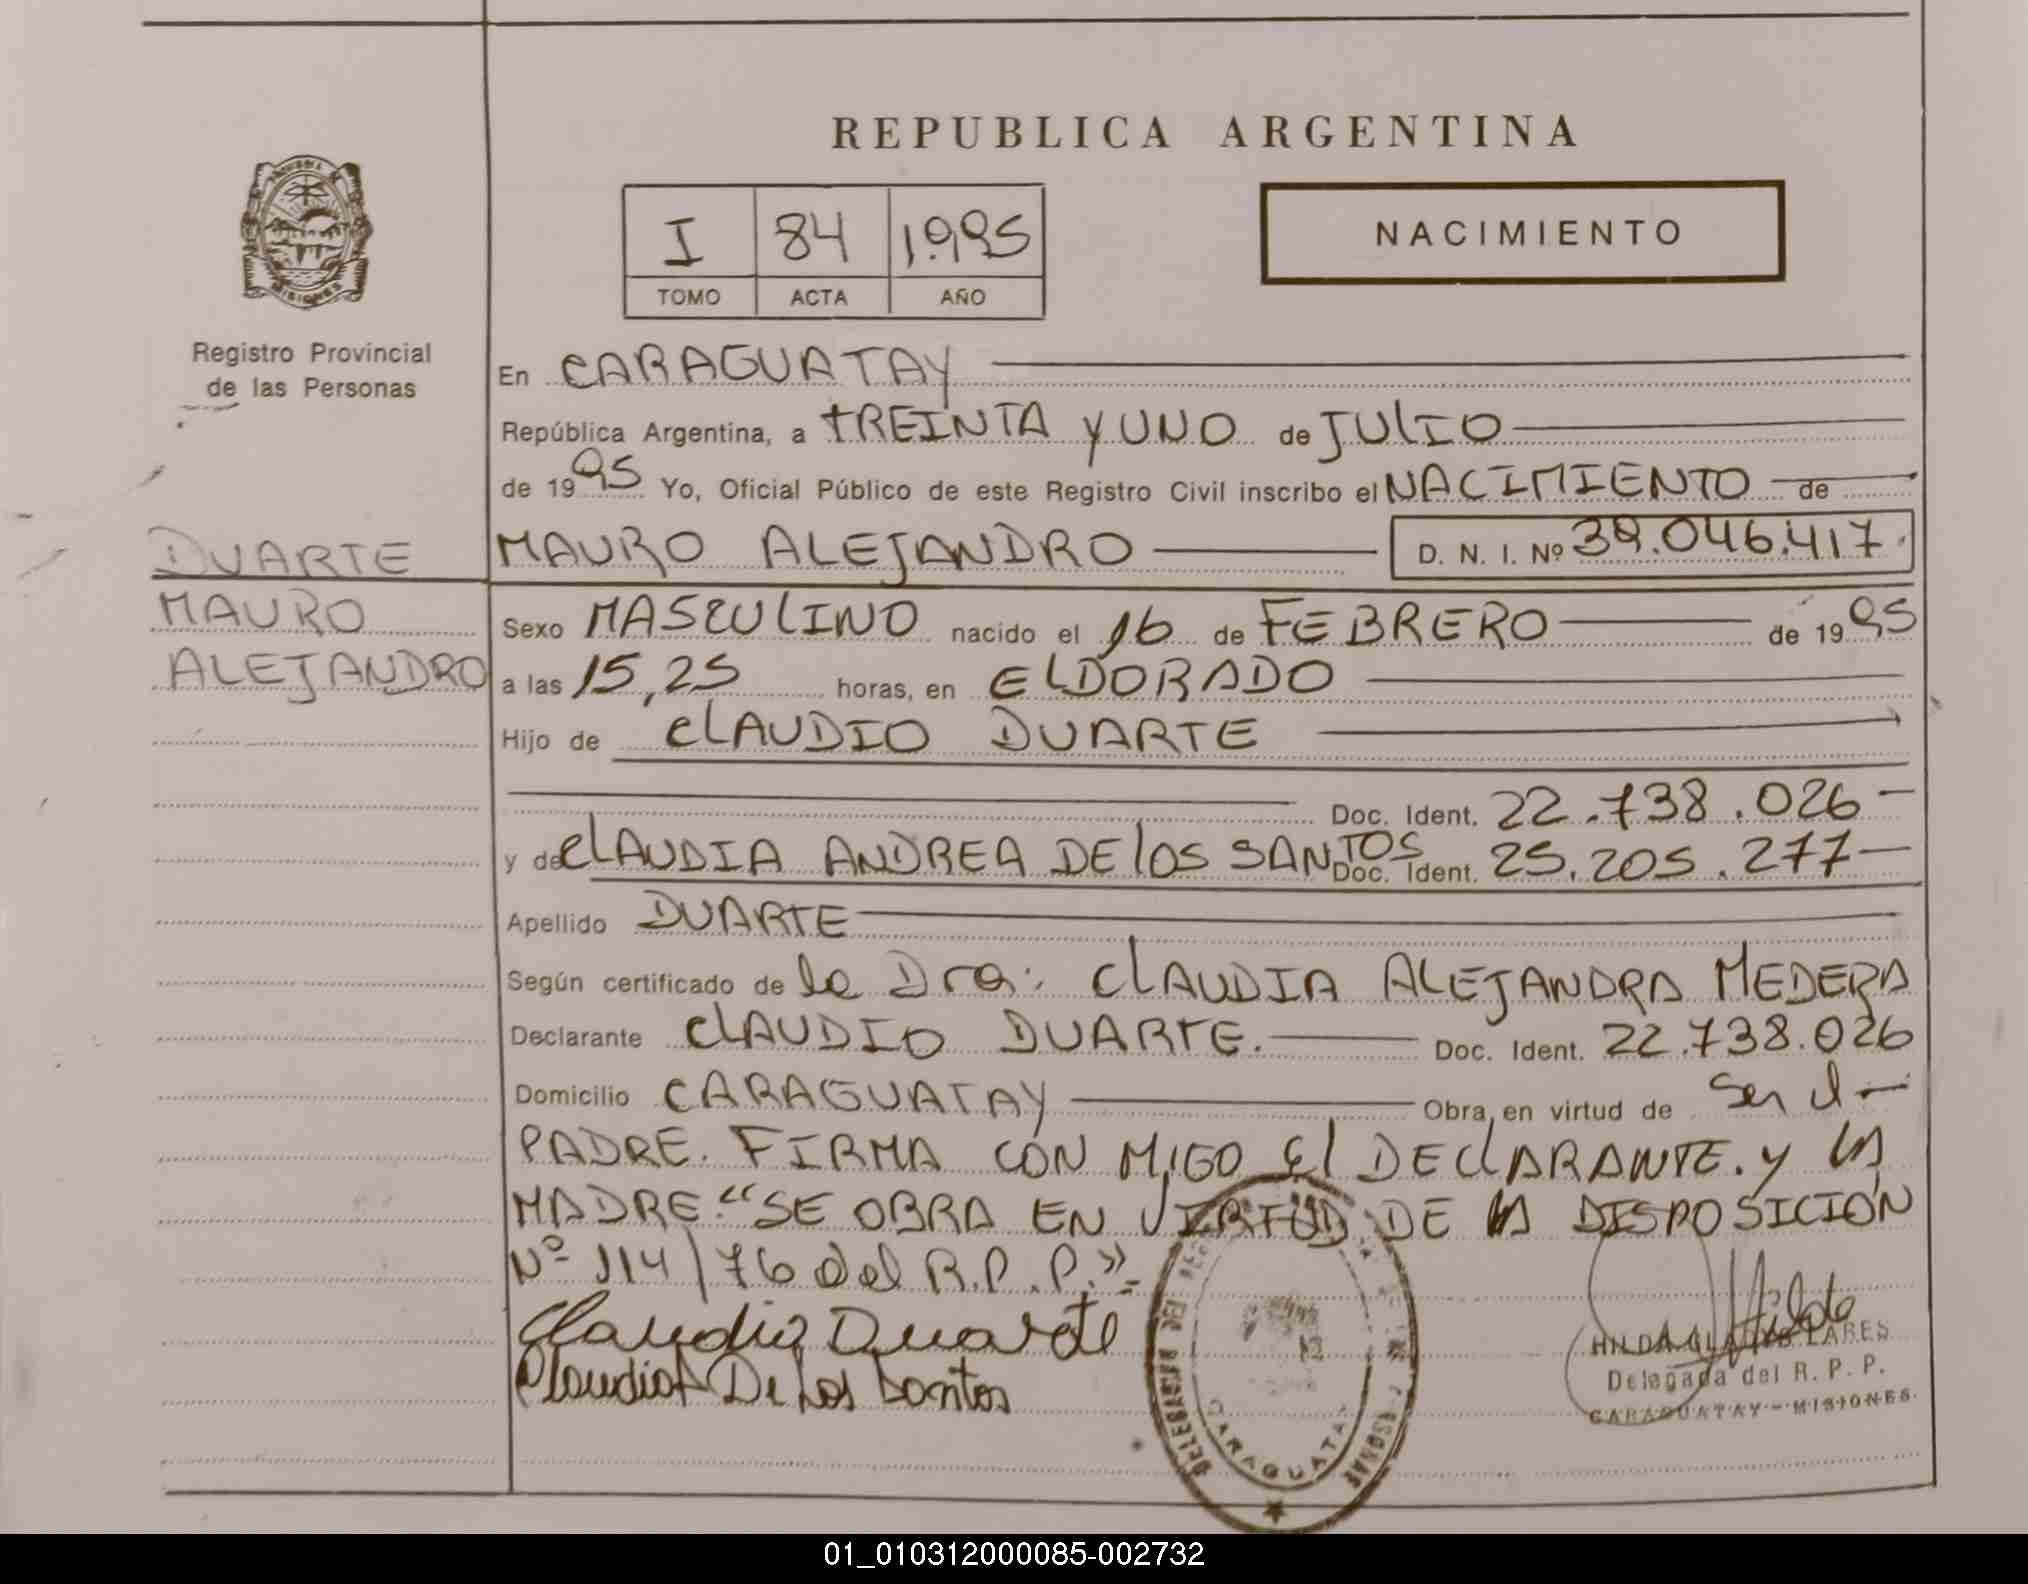 REPUBLICA ARGENTINA
I 84 1.995
TOMO ACTA AÑO
NACIMIENTO
MISIONES
Registro Provincial
de las Personas
DUARTE
MAURO
ALEJANDRO
En CARAGUATAY
República Argentina, a tREINTA y UNO de JULIO
de 1995 Yo, Oficial Público de este Registro Civil inscribo el NACIMIENTO de
MAURO ALEJANDRO D. N. I. Nº 39.046.417
Sexo MASCULINO nacido el 16 de FEBRERO de 1995
a las 15,25 horas, en ELDORADO
Hijo de CLAUDIO DUARTE
Doc. Ident. 22.738.026
y de CLAUDIA ANDREA DE los SANTOS Doc. Ident. 25.205.277
Apellido DUARTE
Según certificado de la Dra: CLAUDIA ALEJANDRA MEDERA
Declarante CLAUDIO DUARTE. Doc. Ident. 22.738.026
Domicilio CARAGUATAY Obra, en virtud de Ser el
PADRE. FIRMA CON MIGO El DEClARANTE. y lA
MADRE. "SE OBRA EN VIRTUD DE lA DISPOSICIÓN
Nº 114/76 del R.P.P."
Claudio Duarte
Claudia A De Los Santos
HILDA GLADYS LARES
Delegada del R. P. P.
CARAGUATAY - MISIONES
01_010312000085-002732